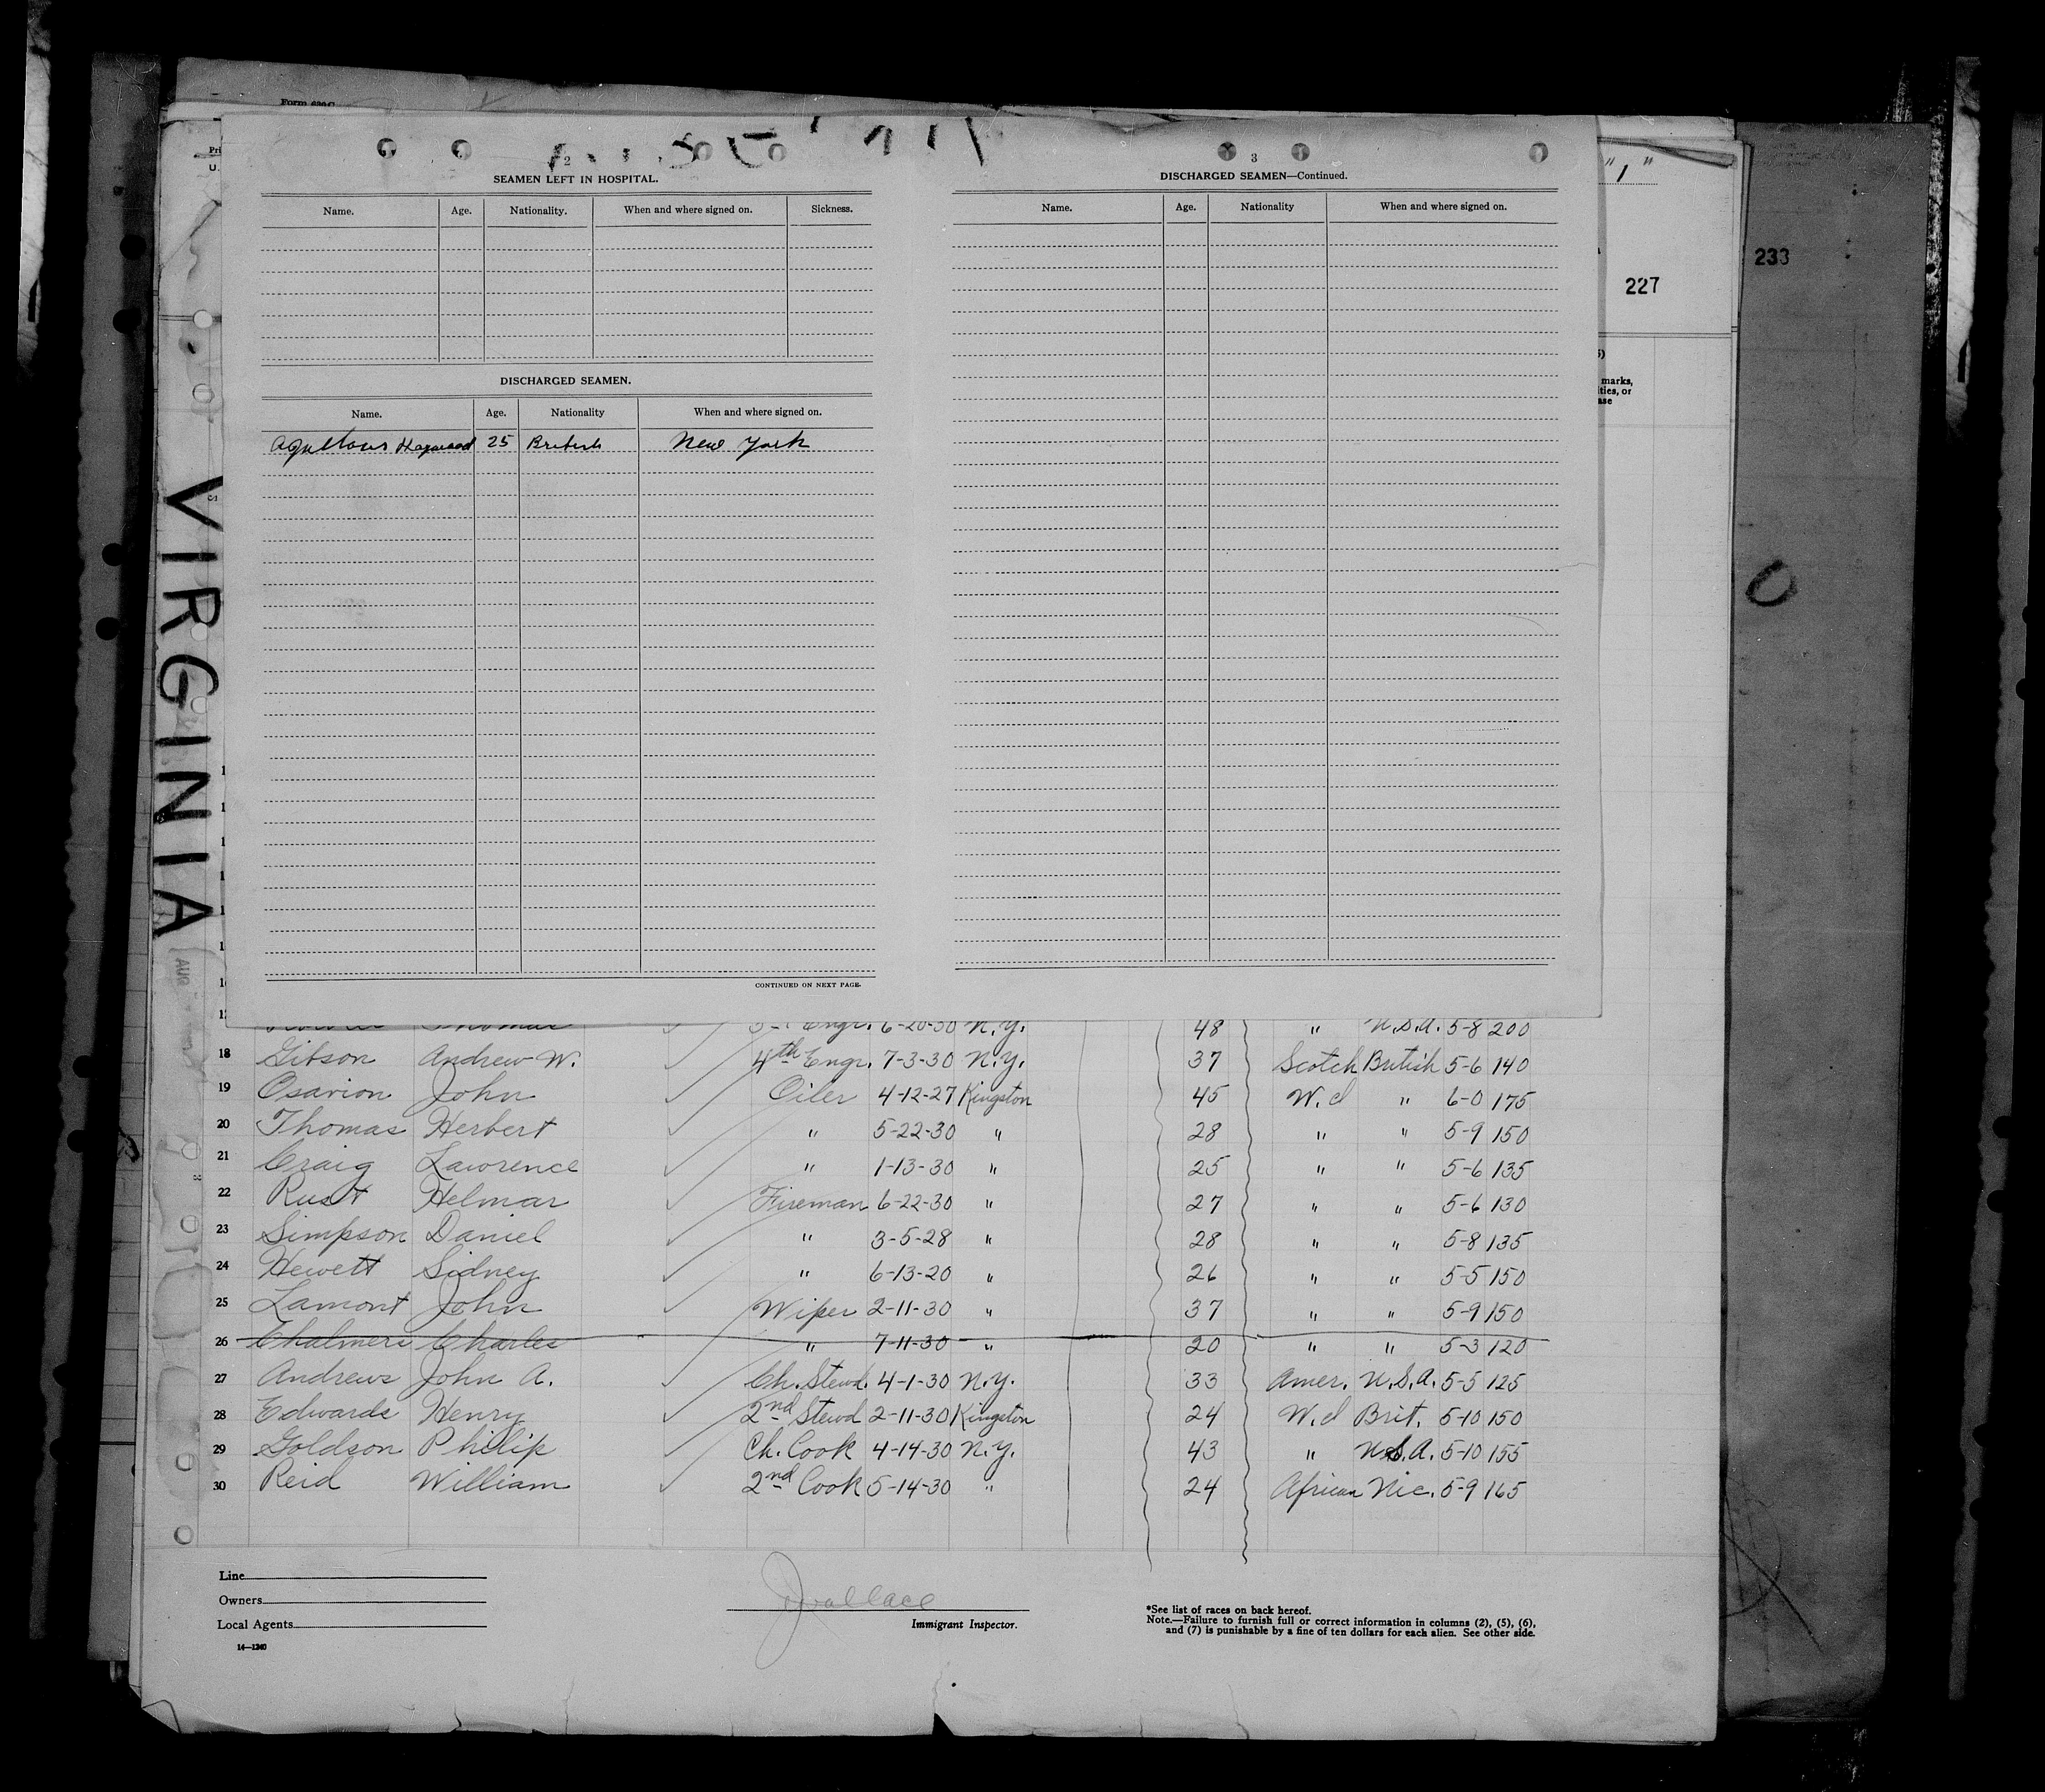 Form 630C
2
SEAMEN LEFT IN HOSPITAL.
Name. Age. Nationality. When and where signed on. Sickness.
DISCHARGED SEAMEN.
Name. Age. Nationality When and where signed on.
25 British New York
CONTINUED ON NEXT PAGE.
3
DISCHARGED SEAMEN—Continued.
Name. Age. Nationality When and where signed on.
" 1 "
227
233
marks,
VIRGINIA
AUG
Thomas Engr. 6-20-30 N.Y. 48 " U.S.A. 5-8 200
18 Gibson Andrew W. 4th Engr. 7-3-30 N.Y. 37 Scotch British 5-6 140
19 Osarion John Oiler 4-12-27 Kingston 45 W.I " 6-0 175
20 Thomas Herbert " 5-22-30 " 28 " " 5-9 150
21 Craig Lawrence " 1-13-30 " 25 " " 5-6 135
22 Rust Helmar Fireman 6-22-30 " 27 " " 5-6 130
23 Simpson Daniel " 3-5-28 " 28 " " 5-8 135
24 Hewett Sidney " 6-13-20 " 26 " " 5-5 150
25 Lamont John Wiper 2-11-30 " 37 " " 5-9 150
26 Chalmers Charles " 7-11-30 " 20 " " 5-3 120
27 Andrews John A. Ch. Stewd. 4-1-30 N.Y. 33 Amer. U.S.A. 5-5 125
28 Edwards Henry 2nd Stewd 2-11-30 Kingston 24 W.I Brit. 5-10 150
29 Goldson Philip Ch. Cook 4-14-30 N.Y. 43 " U.S.A. 5-10 155
30 Reid William 2nd Cook 5-14-30 " 24 African Nic. 5-9 165
Line
Owners
Local Agents
14—1240
JWallace
Immigrant Inspector.
*See list of races on back hereof.
Note.—Failure to furnish full or correct information in columns (2), (5), (6),
and (7) is punishable by a fine of ten dollars for each alien. See other side.